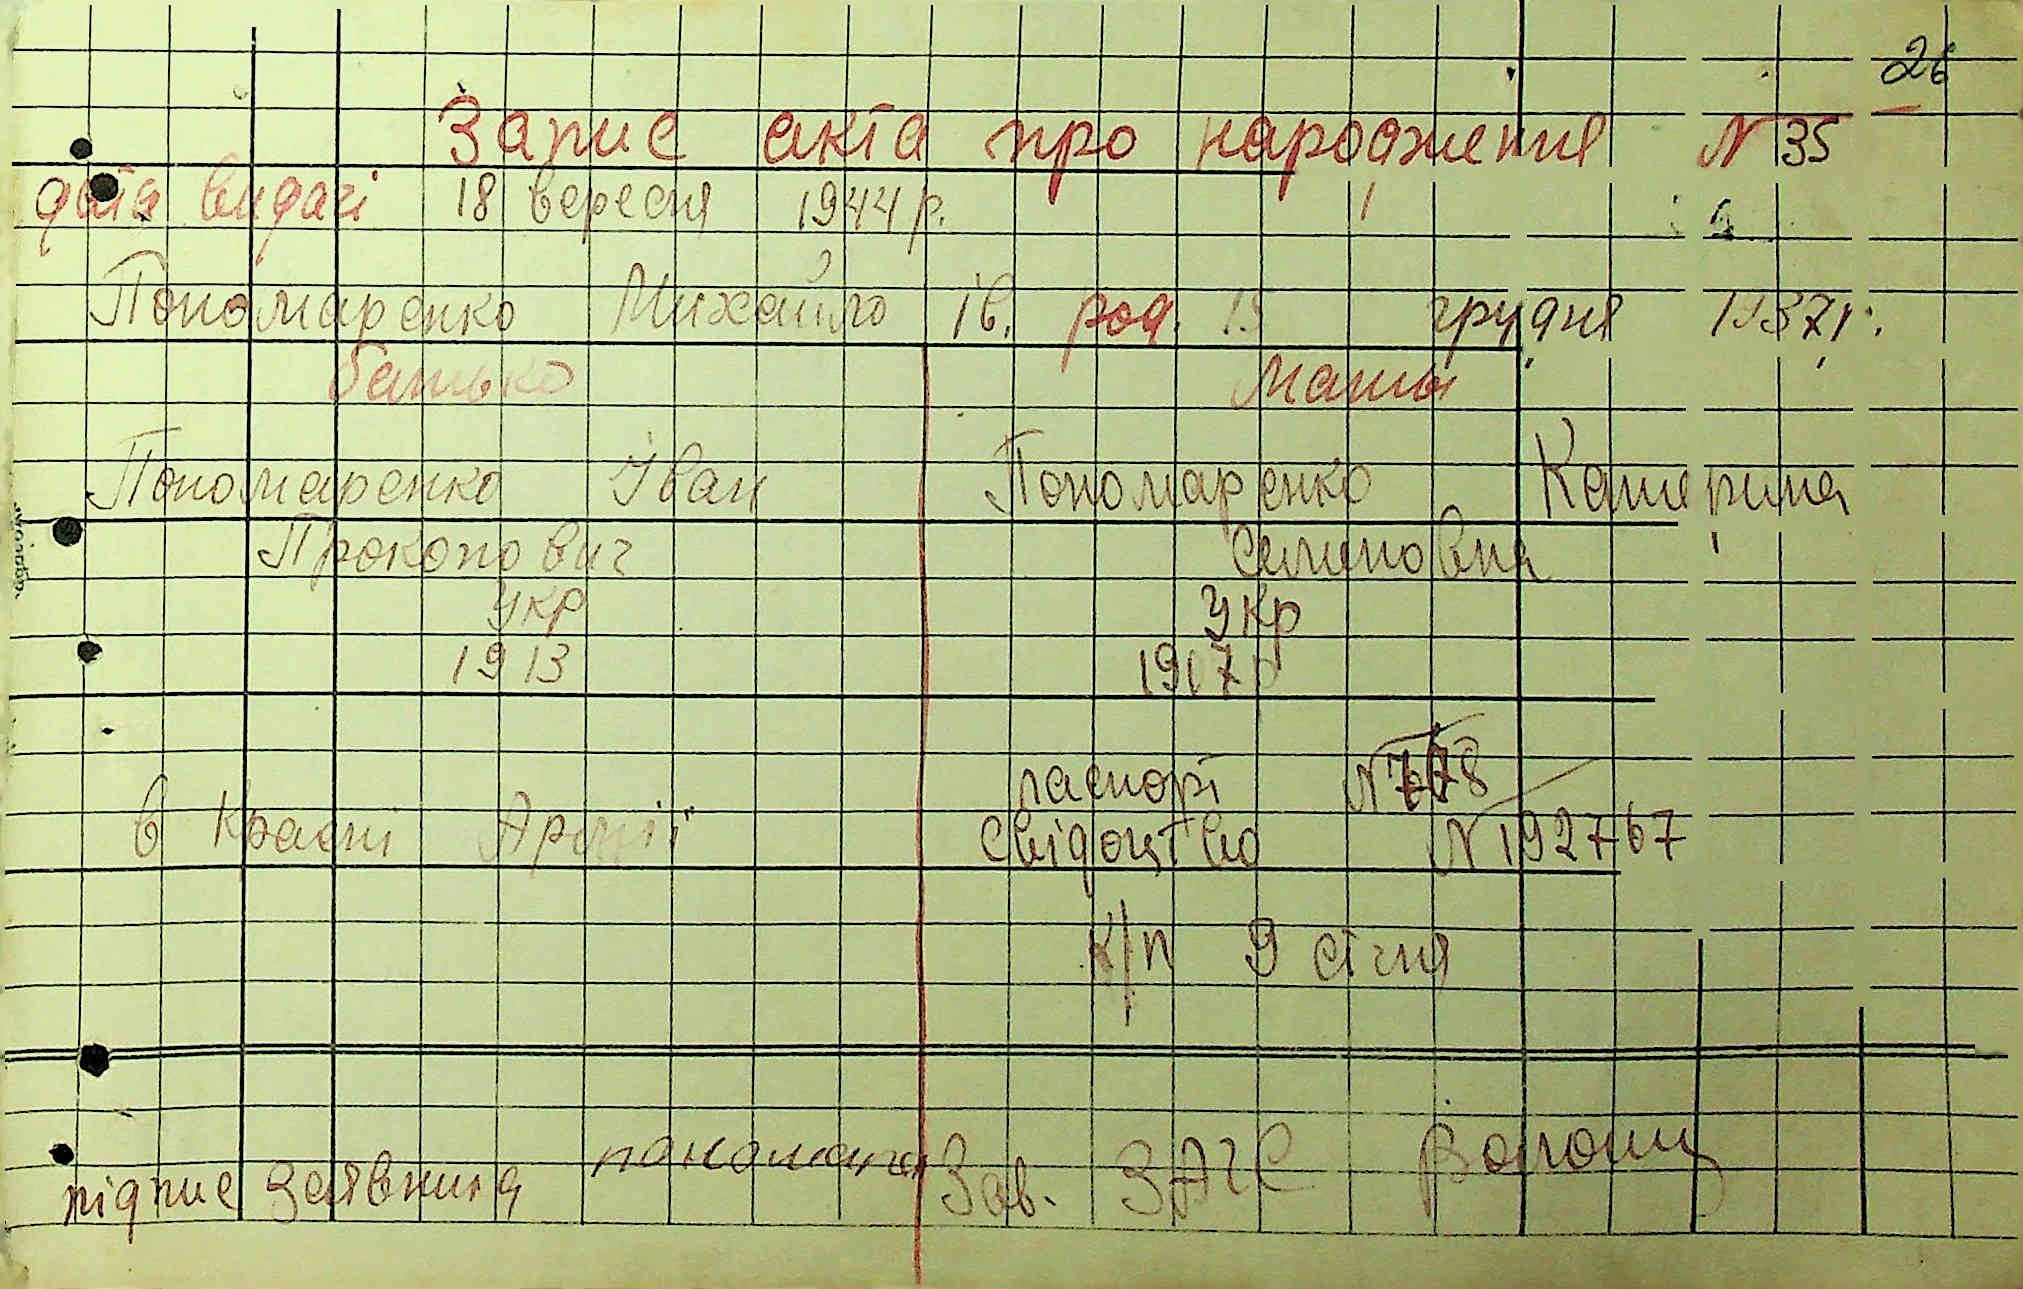 26
Запис акта про народження N 35
дата видачі 18 вересня 1944 р.
Пономаренко Михайло Ів. род. 13 грудня 1937 р.
батько мати
Пономаренко Іван Пономаренко Катерина
Прокопович Семеновна
укр укр
1913 1907 р
паспорт N
в Красні Армії свідоцтво N 192767
к/п 9 січня
підпис заявника Зав. ЗАГС